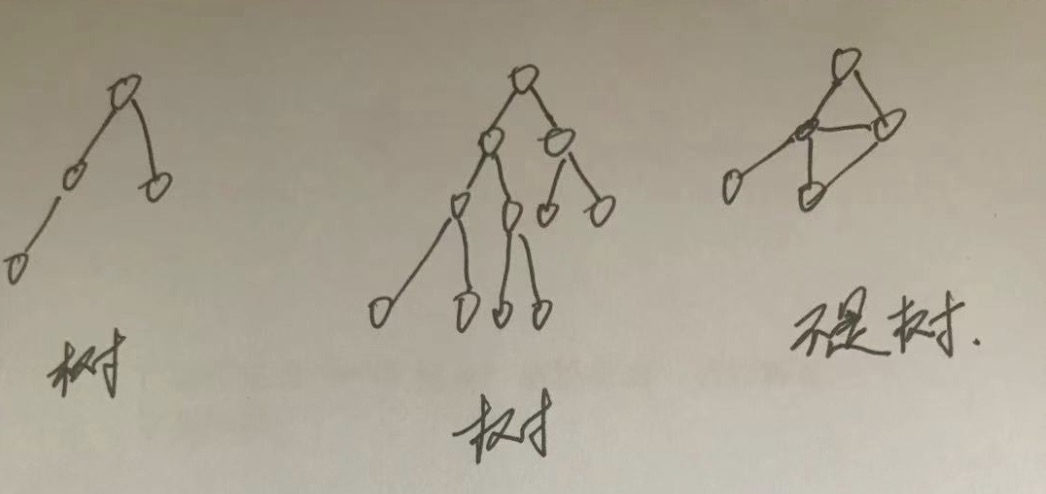 树
树
不是树.